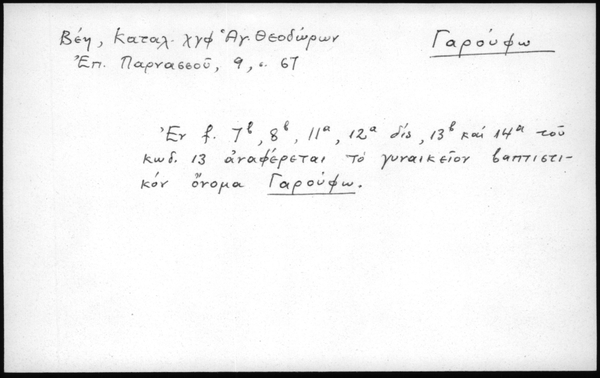 Βέη, Καταλ. χγφ Ἁγ. Θεοδώρων
Γαρούφω
Ἐπ. Παρνασσοῦ, 9, σ. 67
Ἐν f. 7ᵇ, 8ᵇ, 11ᵃ, 12ᵃ δίς, 13ᵇ καί 14ᵃ τοῦ
κωδ. 13 ἀναφέρεται τό γυναικεῖον βαπτιστι-
κόν ὄνομα Γαρούφω.